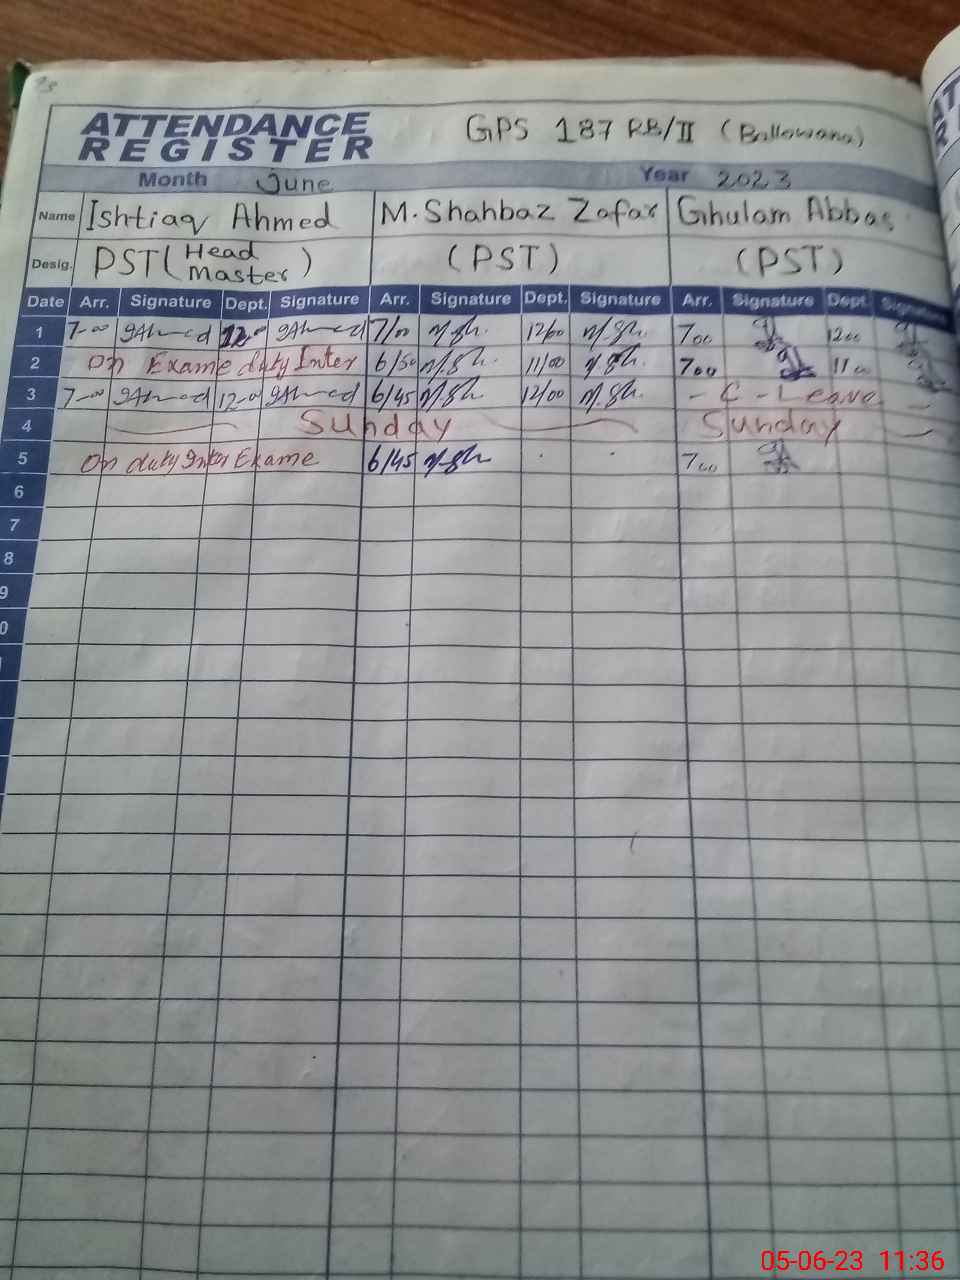 ATTENDANCE REGISTER
GPS 187 RB/II (Ballowana)
Month June Year 2023
Name Ishtiaq Ahmed M. Shahbaz Zafar Ghulam Abbas
Desig. PST (Head Master) (PST) (PST)
Date Arr. Signature Dept. Signature Arr. Signature Dept. Signature Arr. Signature Dept. Signature
1 7-00 12-00 7/00 12/00 700 1200
2 On Exame duty Inter 6/50 11/00 700 1100
3 7-00 12-00 6/45 12/00 - C - Leave -
4 Sunday Sunday
5 On duty Inter Exame 6/45 700
6
7
8
9
0
05-06-23 11:36